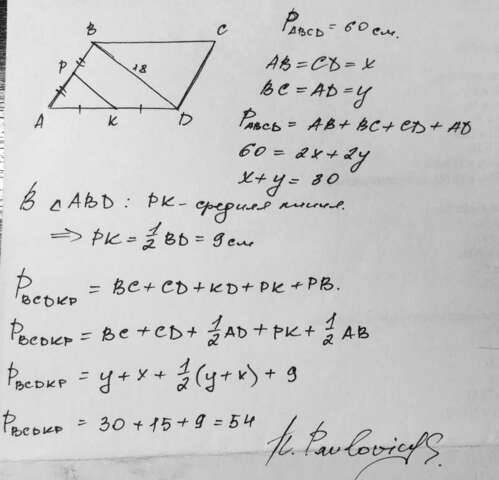 B
C
P
18
A
K
D
P_ABCD = 60 см.
AB = CD = x
BC = AD = y
P_ABCD = AB + BC + CD + AD
60 = 2x + 2y
x + y = 30
В △ ABD : PK - средняя линия.
⇒ PK = 1/2 BD = 9 см
P_BCDKP = BC + CD + KD + PK + PB.
P_BCDKP = BC + CD + 1/2 AD + PK + 1/2 AB
P_BCDKP = y + x + 1/2 (y + x) + 9
P_BCDKP = 30 + 15 + 9 = 54